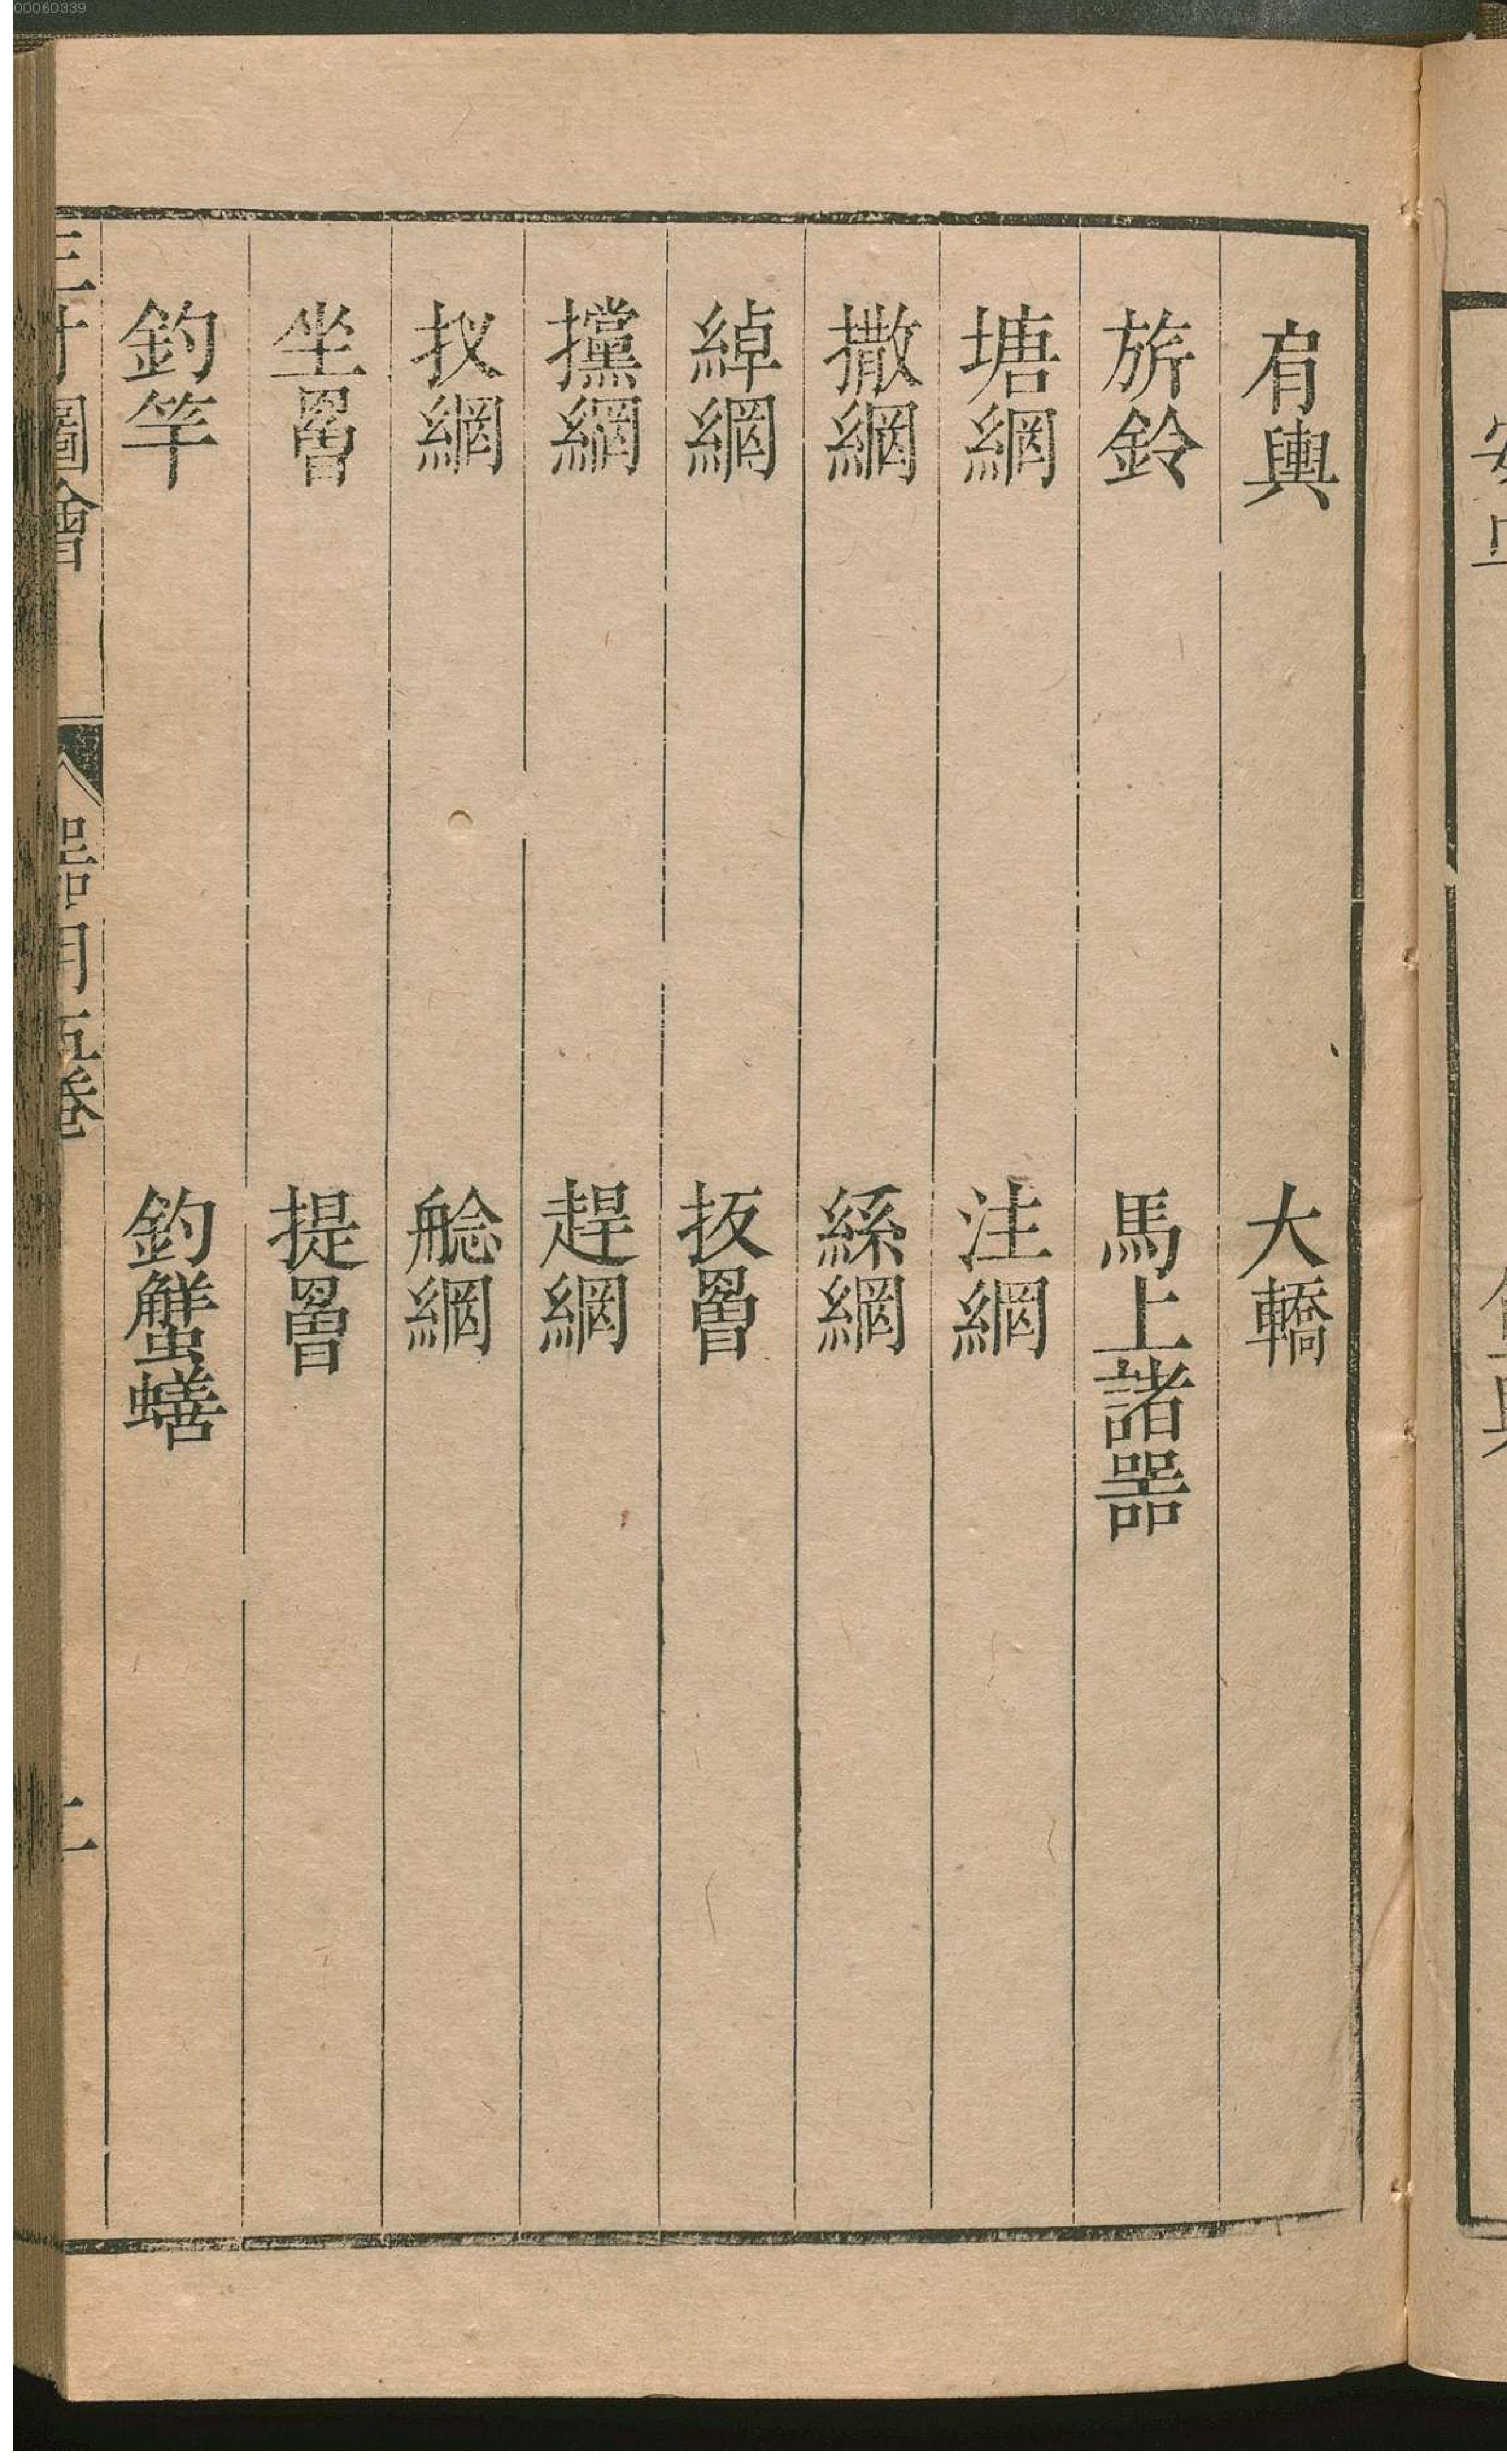 00060339
肩輿　大轎
旂鈴　馬上諸器
塘網　注網
撒網　絲網
綽網　扳罾
攩網　趕網
扠網　艌網
坐罾　提罾
釣竿　釣蟹蟮
三才圖會　器用五卷　二